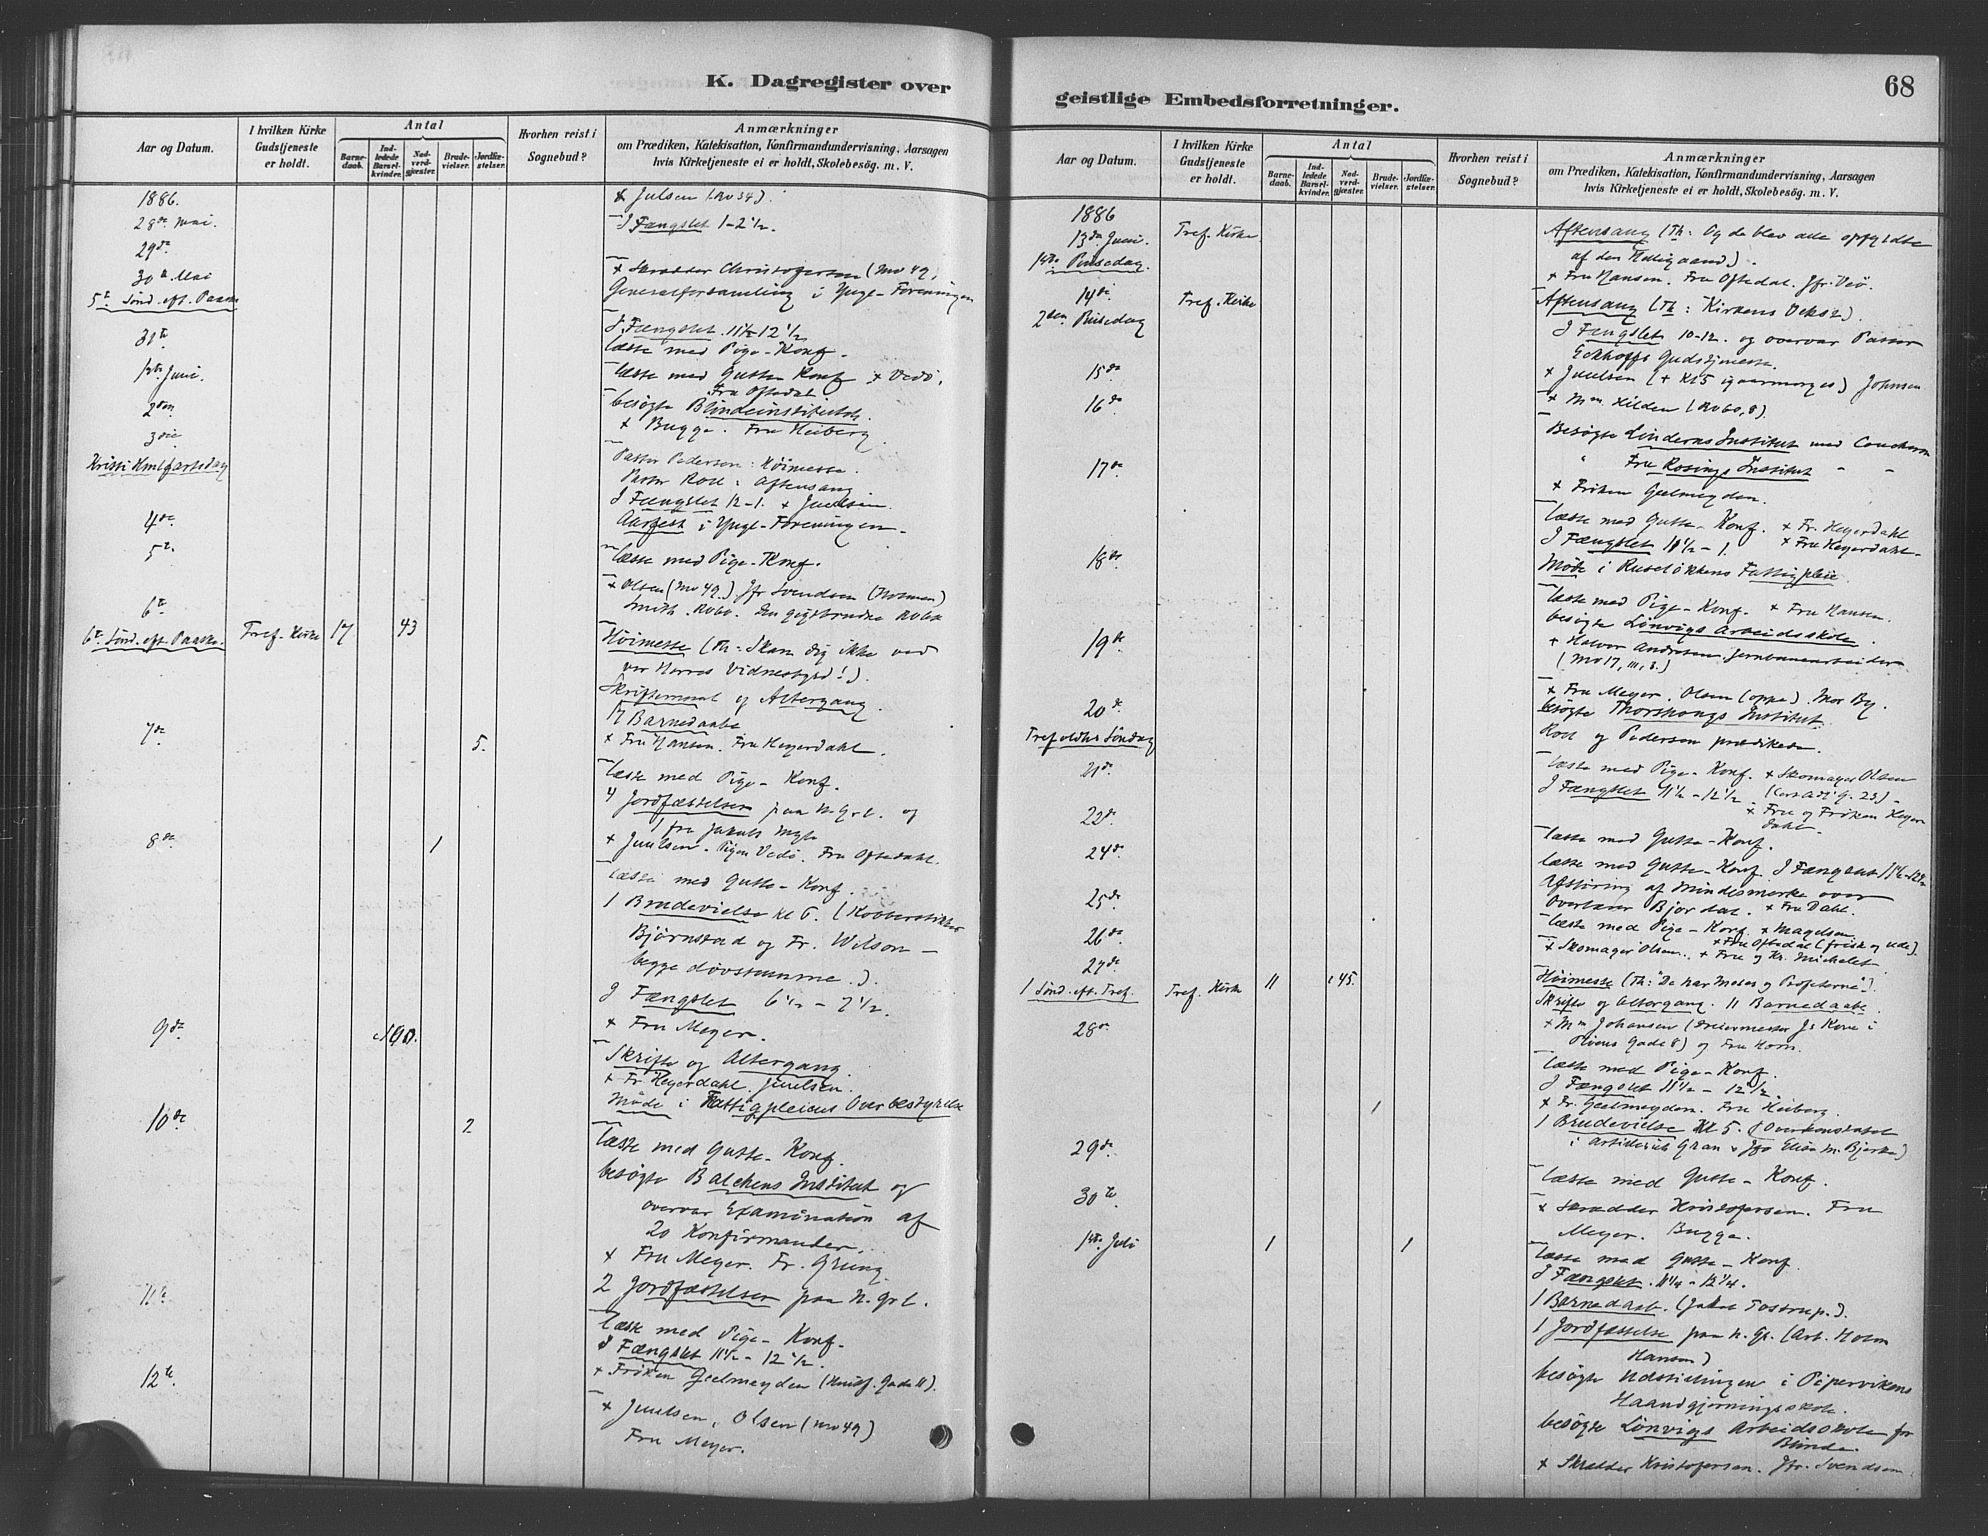 K. Dagregister over
Aar og Datum.
I hvilken Kirke Gudstjeneste er holdt.
Antal
Barnedaab.
Indledede Barselkvinder.
Nadverdgjester.
Brudevielser.
Jordfæstelser.
Hvorhen reist i Sognebud?
Anmærkninger
om Prædiken, Katekisation, Konfirmandundervisning, Aarsagen
hvis Kirketjeneste ei er holdt, Skolebesøg. m. V.
1886.
+ Julsen
28de Mai.
I Fængslet 1-2 1/2.
29de
30te Mai
5te Sønd. eft. Paaske
+ Skrædder Christofersen
Generalforsamling i Yngl-Foreningen
31te
I Fængslet 11 1/2-12 1/2
læste med Pige-Konf.
1ste Juni.
læste med Gutte Konf + Vedø.
Fru Oftedal
2den
besøgte Blindeinstitutet.
+ Bugge. Fru Heiberg
3die
Kristi Himlfartsdag
Pastor Pedersen: Høimesse.
Pastor Roll: Aftensang
I Fængslet 12-1. + Juulsen.
4de
Aarsfest i Yngl-Foreningen.
5te
læste med Pige-Konf.
+ Olsen Jfr Svendsen
6te
6te Sønd. eft. Paaske. Tref. Kirke 17 43
Høimesse (Th: Skam dig ikke ved
vor Herres Vidnesbyrd!).
Skriftemaal og Altergang.
17 Barnedaabe
7de 5.
+ Fru Hansen. Fru Heyerdahl.
læste med Pige-Konf.
4 Jordfæstelser paa n. Grl. og
1 fra Jakobs
8de 1
+ Juulsen. Pigen Vedø. Fru Oftedahl.
læste med Gutte-Konf.
1 Brudevielse kl 6. (Kobberstikker
Bjørnstad og Fr. Wilson -
begge døvstumme.).
I Fængslet 6 1/2 - 7 1/2.
9de
+ Fru Meyer.
Skrifte og Altergang.
+ Fr Heyerdahl. Juulsen.
Møde i Fattigpleiens Overbestyrelse
10de 2
læste med Gutte-Konf.
besøgte Balchens Institut og
overvar Examination af
20 Konfirmander.
+ Fru Meyer. Fr. Grung.
2 Jordfæstelser paa n. Grl.
11te
læste med Pige-Konf.
I Fængslet 11 1/2 - 12 1/2.
12te.
+ Frøken Geelmeyden
+ Juulsen, Olsen
Fru Meyer.
geistlige Embedsforretninger.
68
Aar og Datum.
I hvilken Kirke Gudstjeneste er holdt.
Antal
Barnedaab.
Indledede Barselkvinder.
Nadverdgjester.
Brudevielser.
Jordfæstelser.
Hvorhen reist i Sognebud?
Anmærkninger
om Prædiken, Katekisation, Konfirmandundervisning, Aarsagen
hvis Kirketjeneste ei er holdt, Skolebesøg. m. V.
1886
13de Juni. Tref. Kirke
1ste Pinsedag.
Aftensang (Th: Og de blev alle opfyldte
af den Helligaand).
+ Fru Hansen. Fru Oftedal. Jfr. Veø.
14de Tref. Kirke
2den Pinsedag
Aftensang (Th: Kirkens Vekst).
I Fængslet 10-12. og overvar Pastor
Eckhoffs Gudstjeneste.
15de
+ Juulsen Johnsen
16de
+ Mm. Hilden
Besøgte Linderns Institut med
17de
" Fru Rosings Institut " "
+ Frøken Geelmeyden.
læste med Gutte-Konf. + Fr. Heyerdahl
+ Fru Heyerdahl
18de
I Fængslet 11 1/2 - 1.
Møde i Ruseløkkens Fattigpleie
læste med Pige-Konf. + Fru Hansen.
19de
besøgte Lønvigs Arbeidsskole.
+ Halvor Andresen Jernbanearbeider
+ Fru Meyer. Olsen (oppe). Mor By.
20de
besøgte Institut.
Trefoldhs Søndag
Roll og Pedersen prædikede.
21de.
læste med Pige-Konf. + Skomager Olsen
I Fængslet 11 1/2 - 12 1/2
+ Fru og Frøken Heyerdahl.
22de.
læste med Gutte-Konf.
24de.
læste med Gutte-Konf. I Fængslet
Afsløring af Mindesmerke over
25de
Overlærer Bjørdal. + Fru Dahl.
læste med Pige-Konf. + Magelsen
26de
+ Fru Oftedal (frisk og ude).
+ Skomager Olsen. + Fru og Hr. Michelet.
27de
1 Sønd. eft. Tref. Tref. Kirke 11 c 45.
Høimesse (Th: "De har Moses og Profeterne").
Skrifte og Altergang. 11 Barnedaabe.
28de
+ Mm Johansen (Dreiermester Js Kone i
Gade 8) og Fru Horn.
læste med Pige-Konf.
I Fængslet 11 1/2 - 12 1/2.
+ Fr. Geelmeyden. Fru Heiberg.
1
1 Brudevielse kl 5. (Overkonstabel
i Artilleriet Gran & Jfr Elise M. Bjerke)
29de.
læste med Gutte-Konf.
30te
+ Skrædder Kristofersen. Fru
Meyer. Bugge.
1ste Juli 1 1
læste med Gutte-Konf
I Fængslet. 11 1/4 - 12 1/4.
1 Barnedaab. (Jakob Tostrup.).
1 Jordfæstelse paa n. Gr. (Arb. Holm
Hansen)
besøgte Udstillingen i Pipervikens
Haandgjerningsskole.
besøgte Lønvigs Arbeidsskole for
Blinde.
+ Skrædder Kristofersen. Jfr. Svendsen.